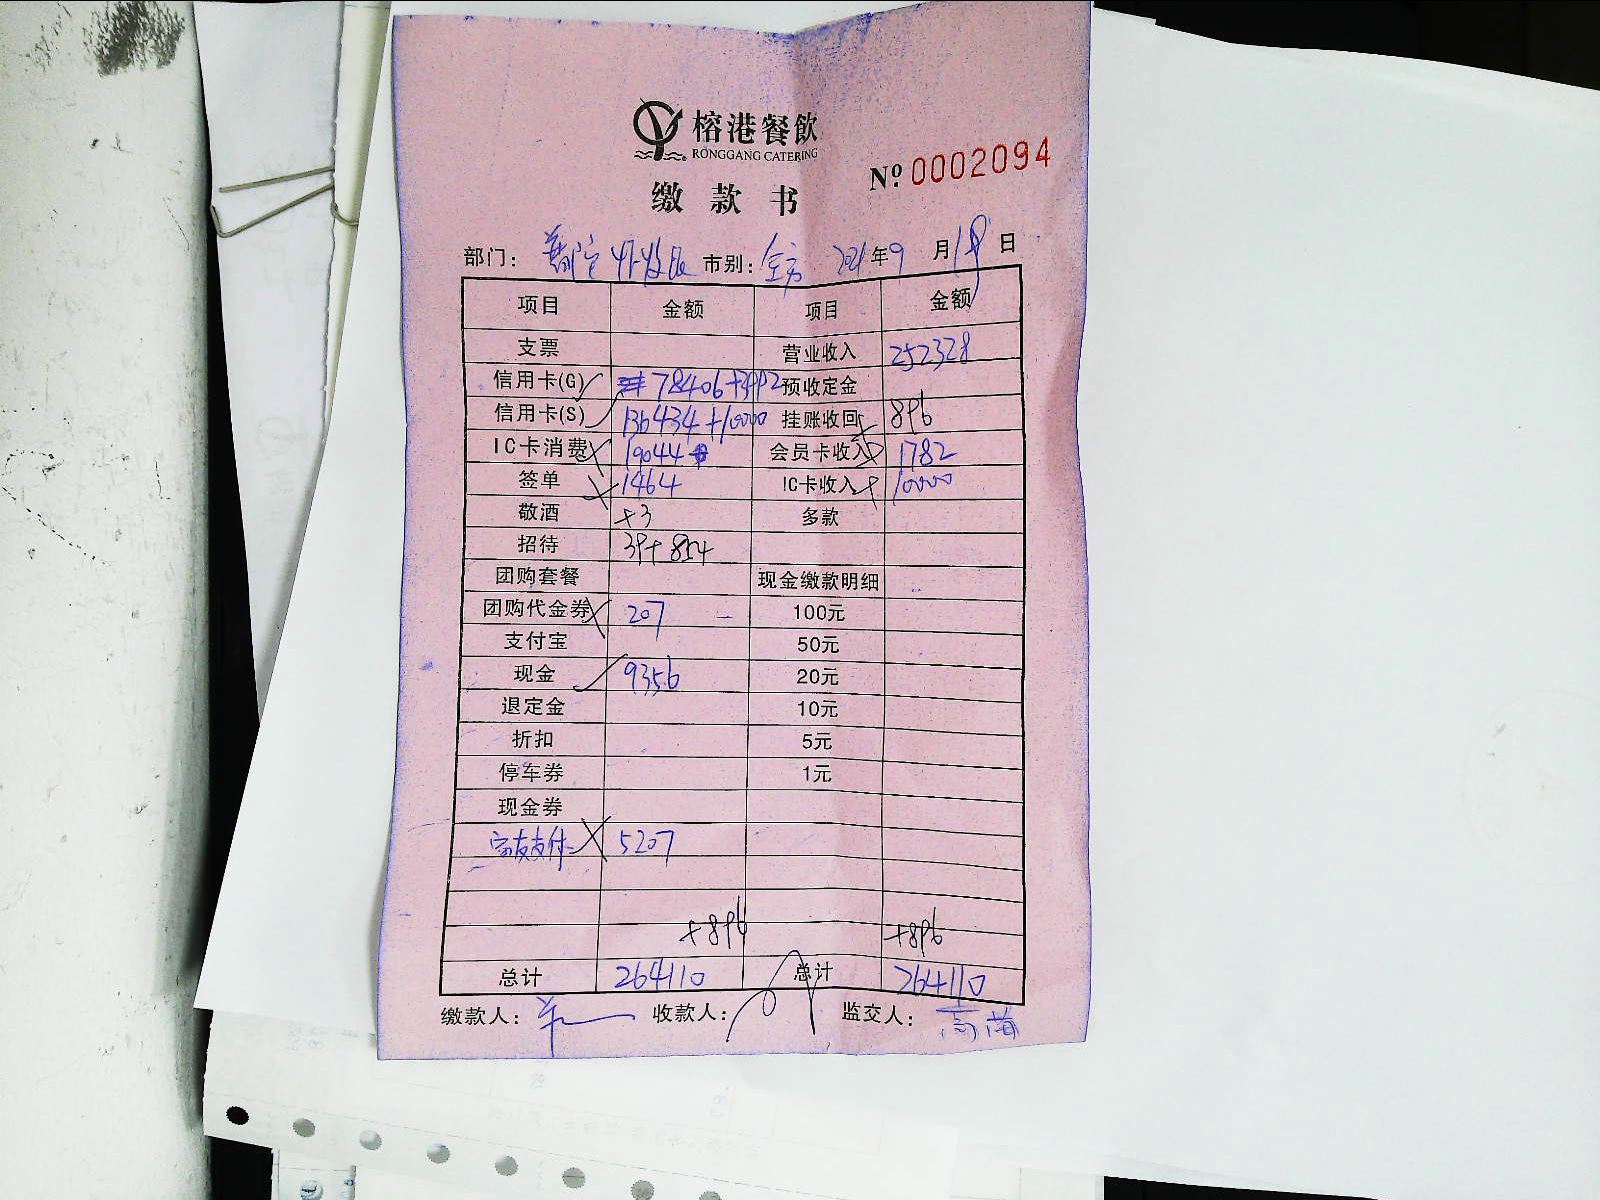 榕港餐飲
RONGGANG CATERING
缴款书
Nº 0002094
部门： 市别：全市 2021年9月19日
项目 金额 项目 金额
支票 营业收入 252328
信用卡(G) 78406+3992 预收定金
信用卡(S) 136434+10000 挂账收回 896
IC卡消费 19044 会员卡收入 1782
签单 1464 IC卡收入 10000
敬酒 +3 多款
招待 39+854
团购套餐 现金缴款明细
团购代金券 207 100元
支付宝 50元
现金 9356 20元
退定金 10元
折扣 5元
停车券 1元
现金券
支付 5207
+896 +896
总计 264110 总计 264110
缴款人： 收款人： 监交人：